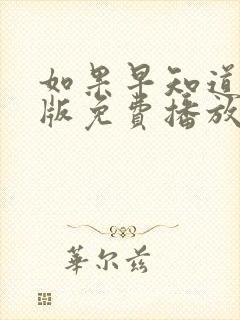 如果早知道
版免費播放
華尔兹